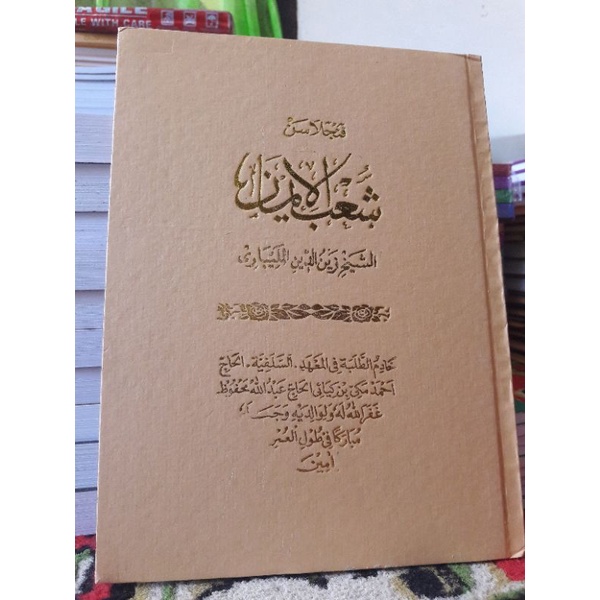 AGILE
LE WITH CARE
فنجلاسن
شعب الإيمان
الشيخ زين الدين المليباري
خادم الطلبة في المعهد. السلفية. الحاج
احمد مكى بن كياهي الحاج عبد الله محفوظ
غفر الله له ولوالديه وجعـ
مباركا في طول العمر
امين